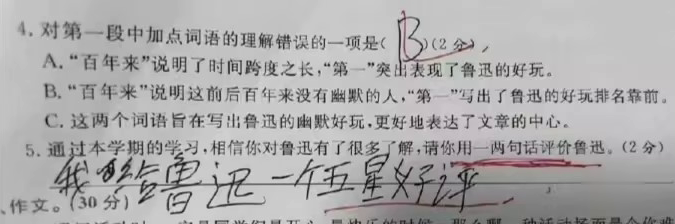 4. 对第一段中加点词语的理解错误的一项是( B )(2分)
A. “百年来”说明了时间跨度之长,“第一”突出表现了鲁迅的好玩。
B. “百年来”说明这前后百年来没有幽默的人,“第一”写出了鲁迅的好玩排名靠前。
C. 这两个词语旨在写出鲁迅的幽默好玩,更好地表达了文章的中心。
5. 通过本学期的学习,相信你对鲁迅有了很多了解,请你用一两句话评价鲁迅。(2分)
我给鲁迅一个五星好评
、作文。(30分)